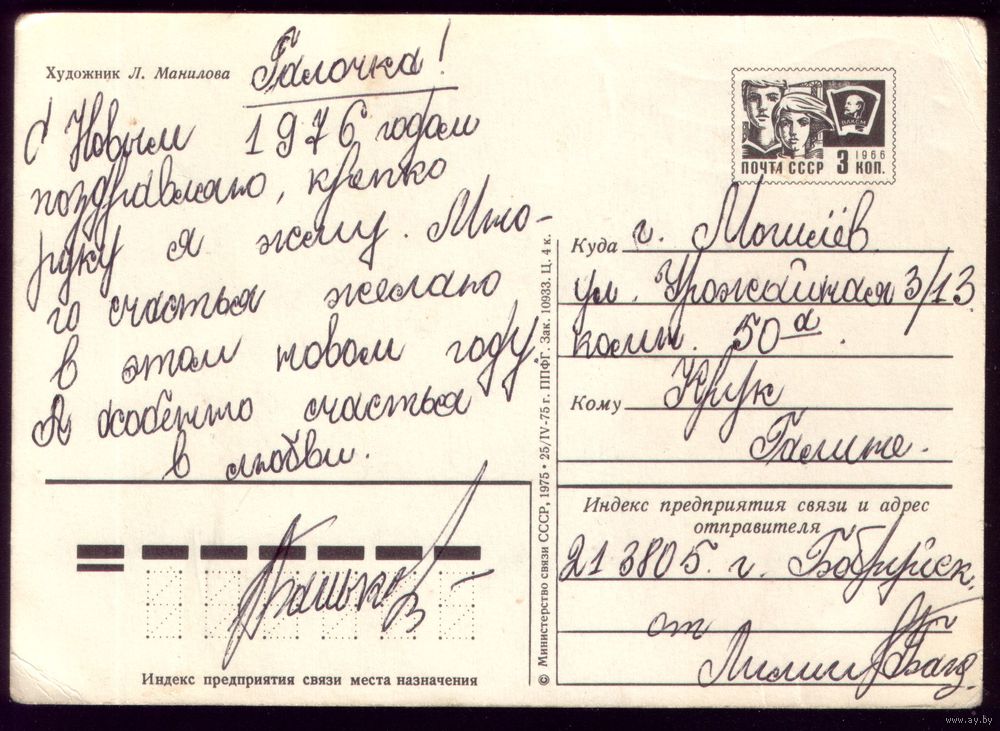 Художник Л. Манилова
Галочка!
С Новым 1976 годом
поздравляю, крепко
руку я жму. Мно-
го счастья желаю
в этом новом году.
А особенно счастья
в любви.
Индекс предприятия связи места назначения
© Министерство связи СССР, 1975 • 25/IV-75 г. ППФГ. Зак. 10933. Ц. 4 к.
ВЛКСМ
1966
ПОЧТА СССР 3 КОП.
Куда г. Могилёв
ул. Урожайная 3/13
комн. 50а.
Кому Крук
Галине.
Индекс предприятия связи и адрес
отправителя
213805. г. Бобруйск.
от
Лилии
www.ay.by